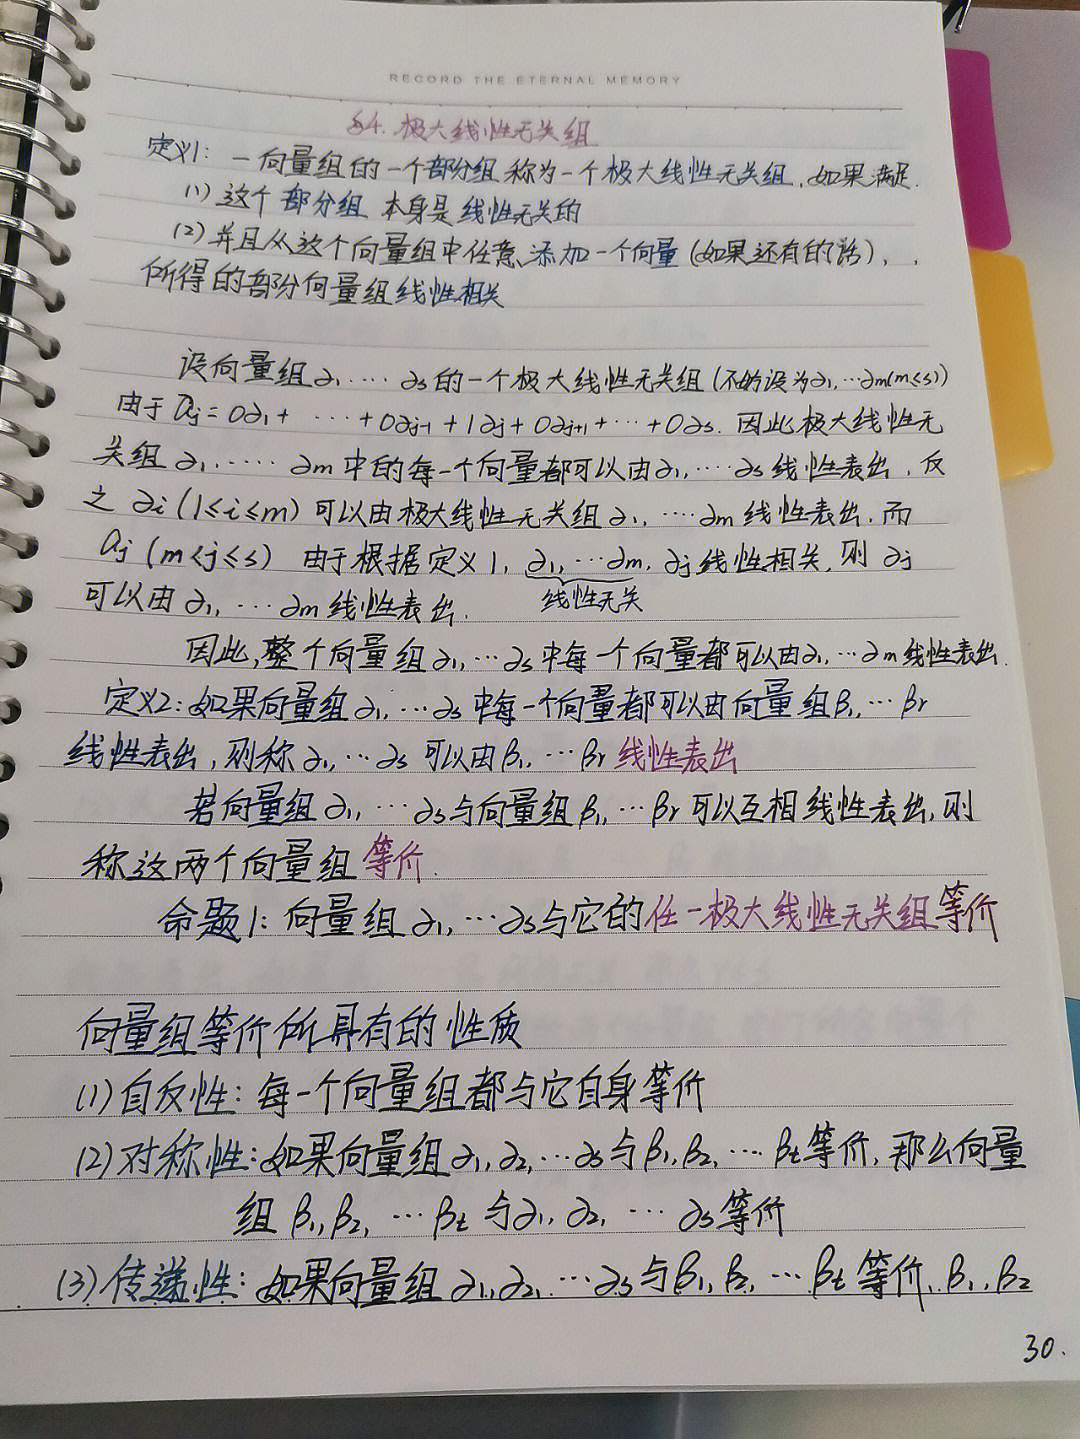 RECORD THE ETERNAL MEMORY
§4. 极大线性无关组
定义1: 一向量组的一个部分组称为一个极大线性无关组, 如果满足.
(1) 这个部分组 本身是线性无关的
(2) 并且从这个向量组中任意添加一个向量(如果还有的话),
所得的部分向量组线性相关
设向量组∂₁, ⋯ ∂s的一个极大线性无关组(不妨设为∂₁, ⋯∂m(m≤s))
由于 aj = 0∂₁ + ⋯ + 0∂j-1 + 1∂j + 0∂j+1 + ⋯ + 0∂s. 因此极大线性无
关组 ∂₁, ⋯ ∂m 中的每一个向量都可以由∂₁, ⋯ ∂s 线性表出, 反
之 ∂i (1≤i≤m) 可以由极大线性无关组∂₁, ⋯∂m 线性表出, 而
aj (m<j≤s) 由于根据定义1, ∂₁, ⋯∂m, ∂j 线性相关, 则 ∂j
线性无关
可以由 ∂₁, ⋯ ∂m 线性表出.
因此, 整个向量组∂₁, ⋯ ∂s中每一个向量都可以由∂₁, ⋯ ∂m线性表出.
定义2: 如果向量组 ∂₁, ⋯ ∂s 中每一个向量都可以由向量组β₁, ⋯ βr
线性表出, 则称 ∂₁, ⋯ ∂s 可以由β₁, ⋯ βr 线性表出
若向量组 ∂₁, ⋯ ∂s与向量组 β₁, ⋯ βr可以互相线性表出, 则
称这两个向量组 等价.
命题1: 向量组 ∂₁, ⋯ ∂s与它的任一极大线性无关组等价
向量组等价所具有的性质
(1) 自反性: 每一个向量组都与它自身等价
(2) 对称性: 如果向量组 ∂₁, ∂₂, ⋯ ∂s与β₁, β₂, ⋯ βt等价, 那么向量
组 β₁, β₂, ⋯ βt 与∂₁, ∂₂, ⋯ ∂s等价
(3) 传递性: 如果向量组 ∂₁, ∂₂, ⋯ ∂s 与β₁, β₂, ⋯ βt 等价, β₁, β₂
30.